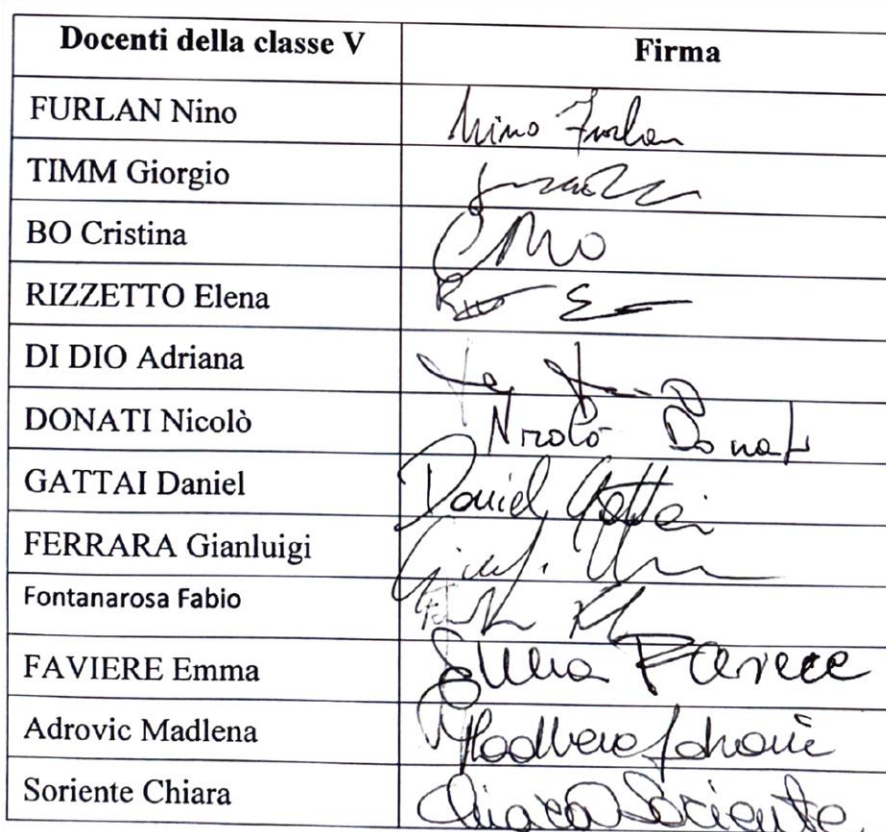 Docenti della classe V Firma
FURLAN Nino Nino Furlan
TIMM Giorgio
BO Cristina
RIZZETTO Elena
DI DIO Adriana
DONATI Nicolò Nicolò Donati
GATTAI Daniel Daniel Gattai
FERRARA Gianluigi
Fontanarosa Fabio
FAVIERE Emma Emma Faviere
Adrovic Madlena Madlena Adrovic
Soriente Chiara Chiara Soriente